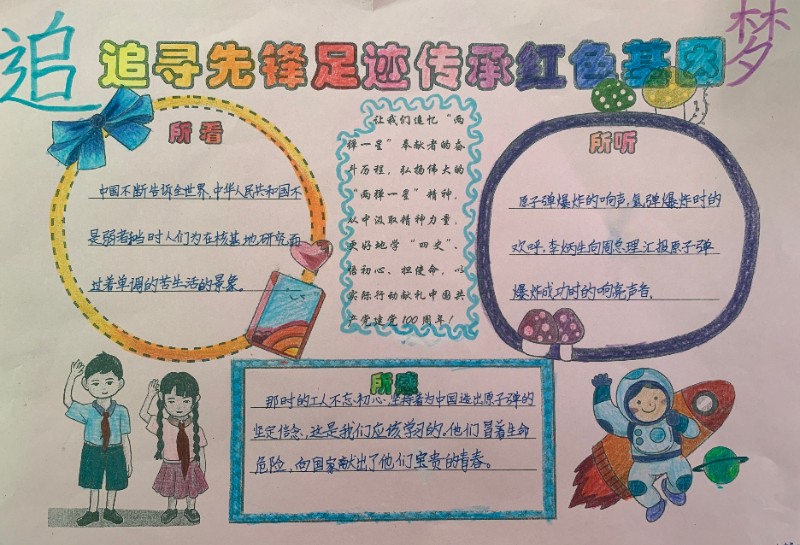 追
追寻先锋足迹传承红色基因
梦
所看
中国不断告诉全世界,中华人民共和国不
是弱者,当时人们为在核基地研究而
过着单调的苦生活的景象。
让我们追忆“两
弹一星”奉献者的奋
斗历程，弘扬伟大的
“两弹一星”精神，
从中汲取精神力量，
更好地学“四史”、
悟初心、担使命，以
实际行动献礼中国共
产党建党100周年！
所听
原子弹爆炸的响声,氢弹爆炸时的
欢呼,李炳生向周总理汇报原子弹
爆炸成功时的响亮声音.
所感
那时的工人不忘初心,坚持着为中国造出原子弹的
坚定信念,这是我们应该学习的。他们冒着生命
危险,向国家献出了他们宝贵的青春。